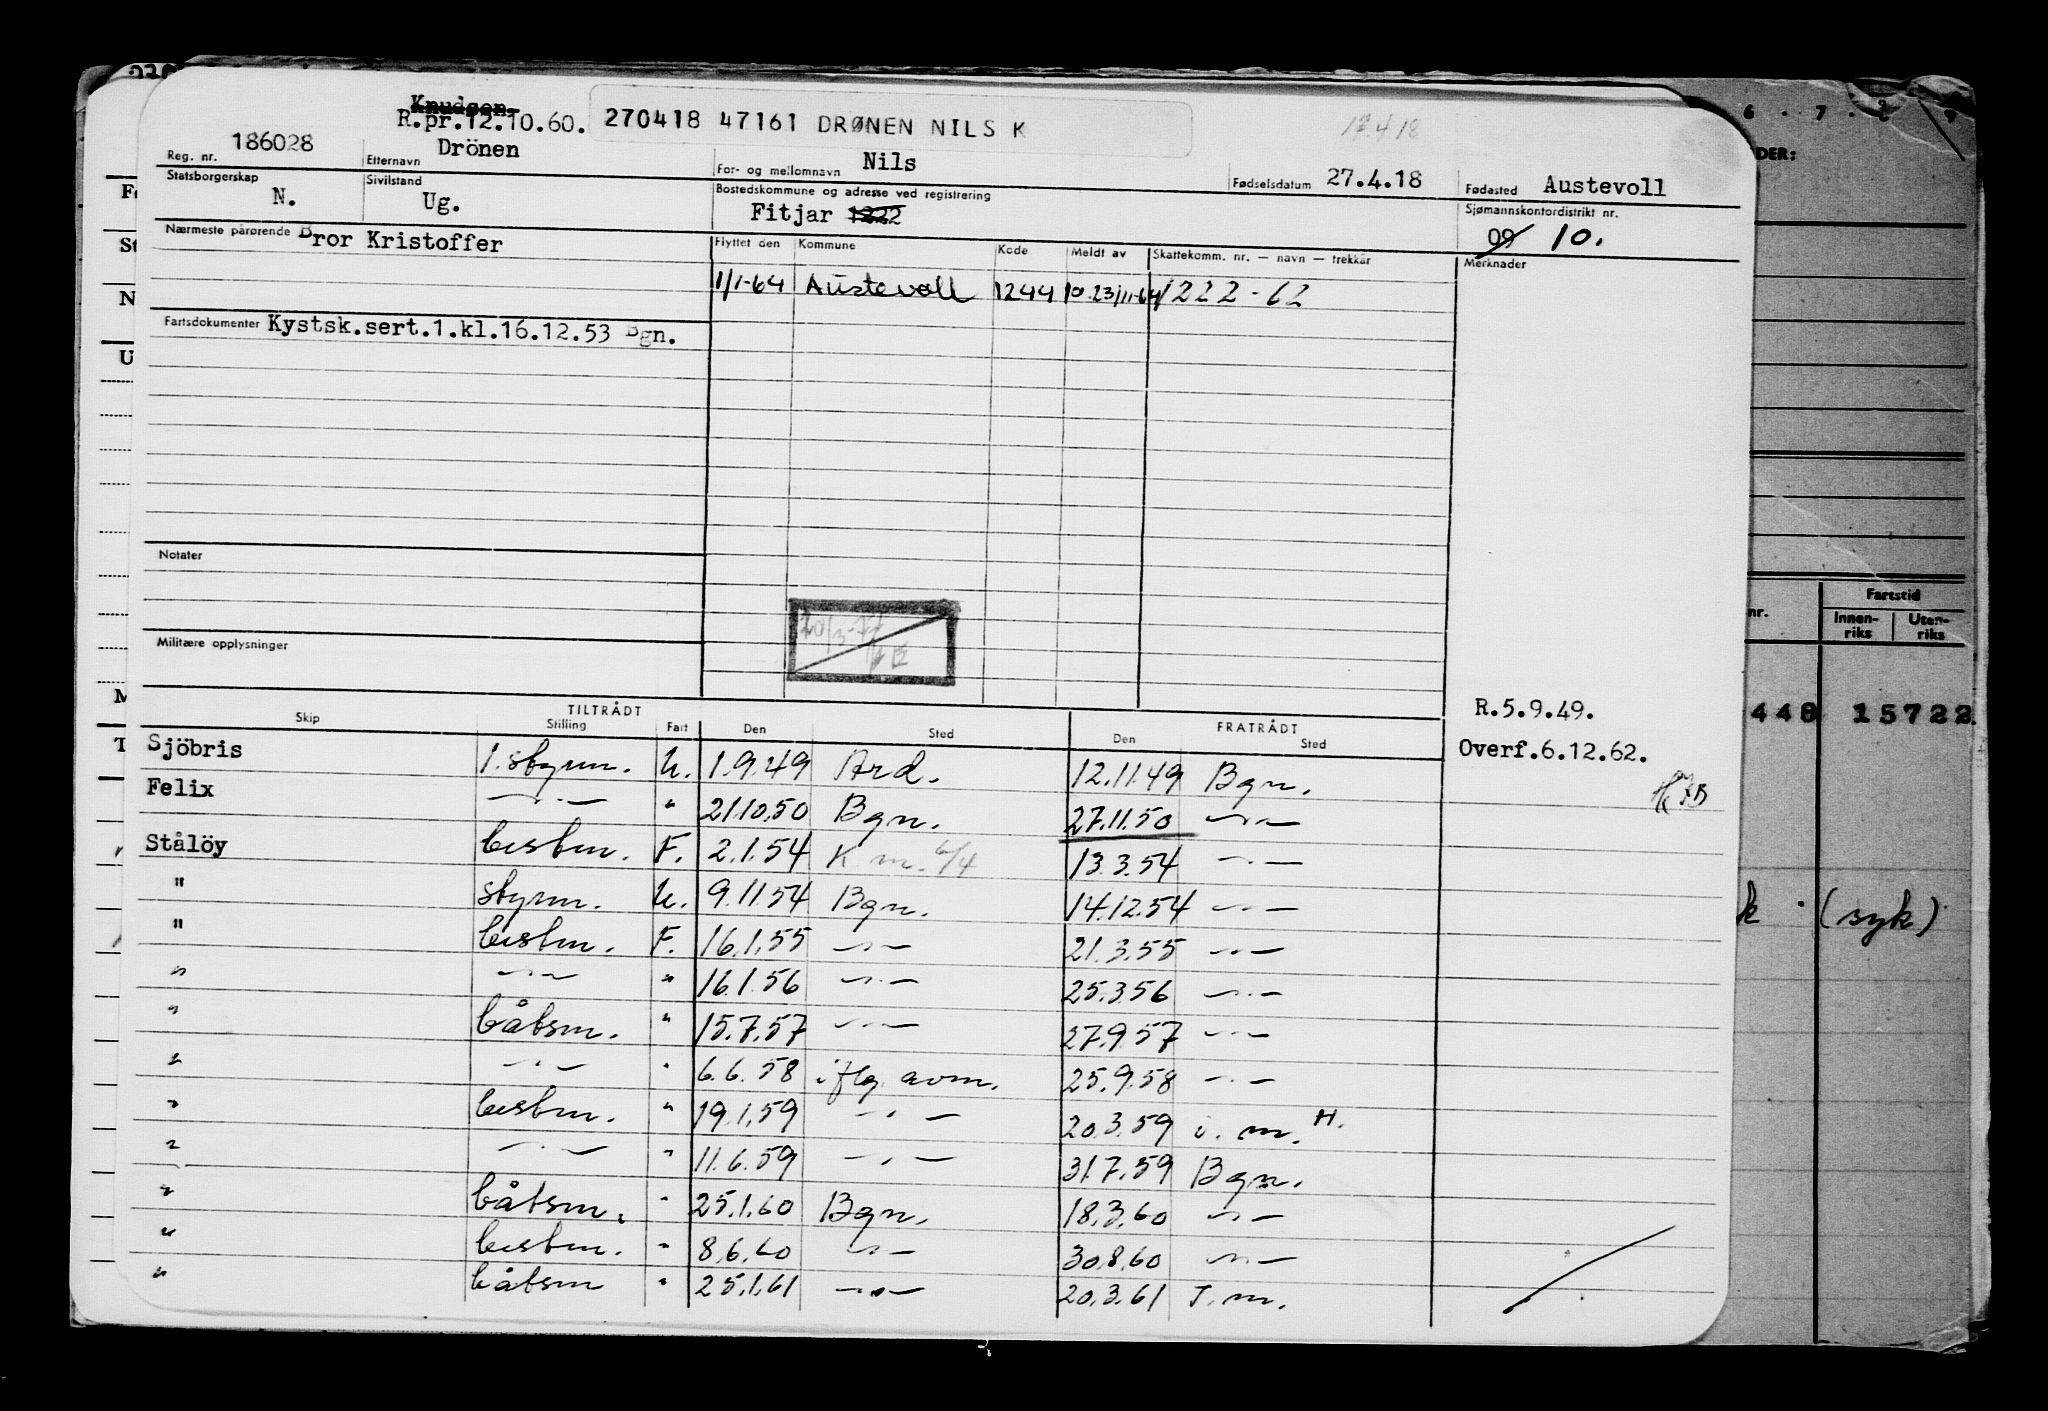 Knudsen
R.pr.12.10.60. 270418 47161 DRØNEN NILS K
Reg. nr. 186028 Etternavn Drönen For- og mellomnavn Nils Fødselsdatum 27.4.18 Fødested Austevoll
Statsborgerskap N. Sivilstand Ug. Bostedskommune og adresse ved registrering Fitjar 1222 Sjømannskontordistrikt nr. 09 10.
Nærmeste pårørende Bror Kristoffer Flyttet den Kommune Kode Meldt av Skattekomm. nr. — navn — trekkår Merknader
1/1-64 Austevoll 1244 10.23/11-64 1222-62
Fartsdokumenter Kystsk.sert.1.kl.16.12.53 Bgn.
Notater
Militære opplysninger
R.5.9.49.
Overf.6.12.62.
TILTRÅDT FRATRÅDT
Skip Stilling Fart Den Sted Den Sted
Sjöbris 1.styrm. U. 1.9.49 Ard. 12.11.49 Bgn.
Felix —.— " 21.10.50 Bgn. 27.11.50 —"—
Stålöy bestm. F. 2.1.54 K.m. 6/4 13.3.54 —"—
" styrm. U. 9.11.54 Bgn. 14.12.54 —"—
" bestm. F. 16.1.55 —"— 21.3.55 —"—
" —"— " 16.1.56 —"— 25.3.56 —"—
" båtsm. " 15.7.57 —"— 27.9.57 —"—
" —"— " 6.6.58 iflg. avm. 25.9.58 —"—
" bestm. " 19.1.59 —"— 20.3.59 i. m. H.
" —"— " 11.6.59 —"— 31.7.59 Bgn.
" båtsm. " 25.1.60 Bgn. 18.3.60 —"—
" bestm. " 8.6.60 —"— 30.8.60 —"—
" båtsm " 25.1.61 —"— 20.3.61 I.m.
6 . 7 . 8
DER:
nr. Fartstid
Innen-riks Uten-riks
448 15722
k . (syk)